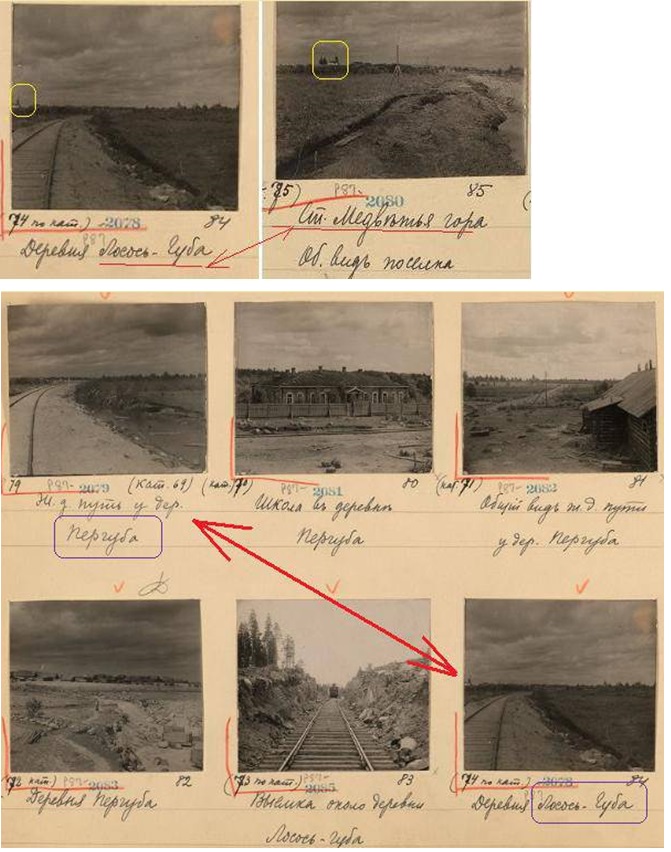 (74 по кат.) 2078 84
Деревня Лосось-Губа
P87-
75) P87- 2080 85
Ст. Медвѣжья гора
Об. видъ поселка
79 P87- 2079 (Кат. 69)
Ж. д. путь у дер.
Пергуба
(кат. 70) P87- 2081 80
Школа въ деревнѣ
Пергуба
(кат. 71) P87- 2082 81
Общій видъ ж. д. пути
у дер. Пергуба
(72 кат.) P87- 2083 82
Деревня Пергуба
(73 по кат.) P87- 2085 83
Выемка около деревни
Лосось-губа
(74 по кат.) 2078 84
Деревня Лосось-Губа
P87-